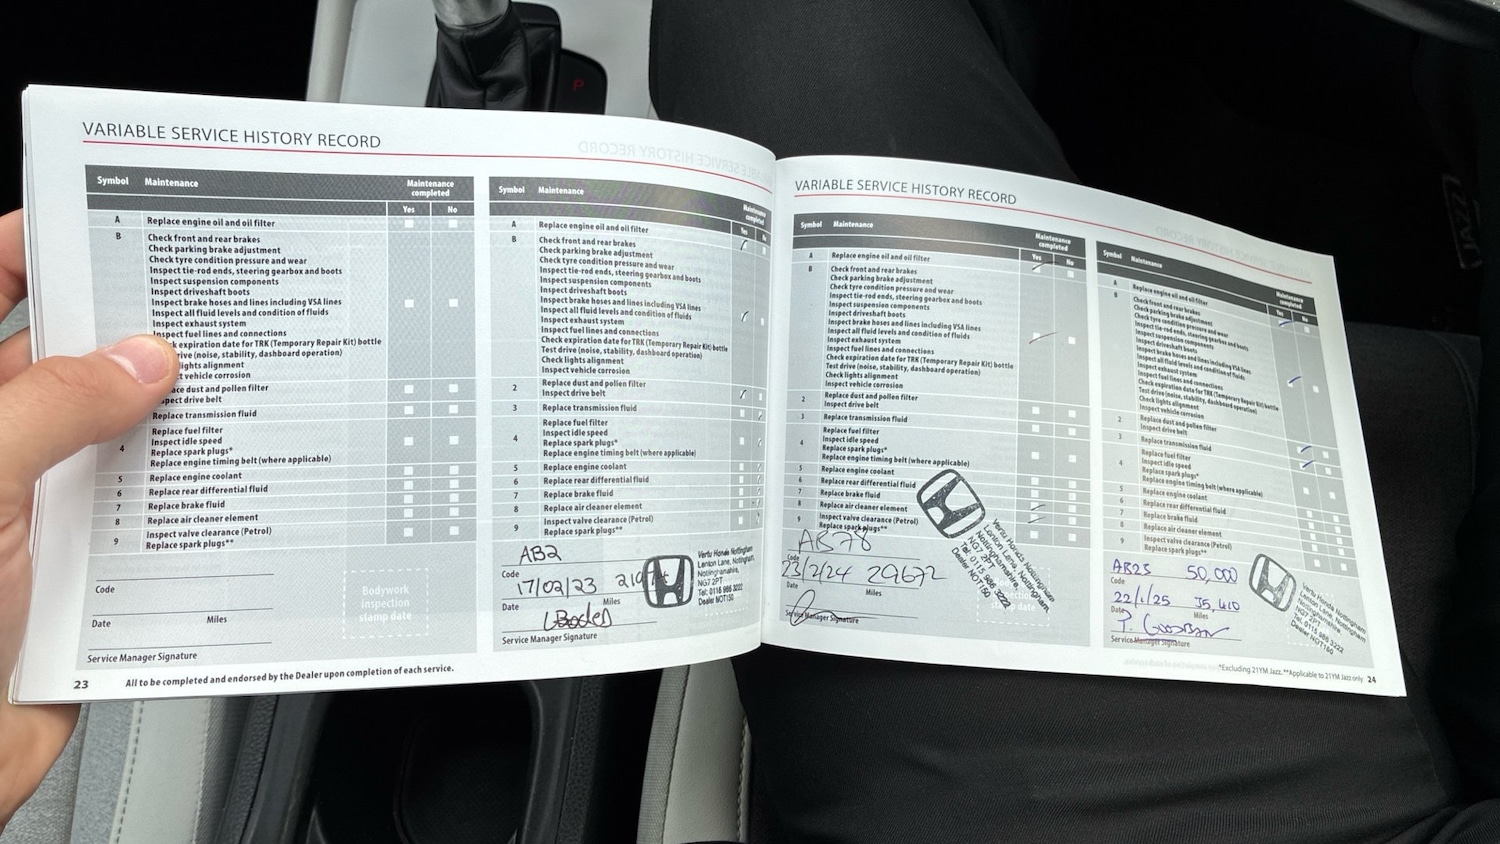 P
VARIABLE SERVICE HISTORY RECORD
Symbol Maintenance Maintenance completed
Yes No
A Replace engine oil and oil filter
B Check front and rear brakes
Check parking brake adjustment
Check tyre condition pressure and wear
Inspect tie-rod ends, steering gearbox and boots
Inspect suspension components
Inspect driveshaft boots
Inspect brake hoses and lines including VSA lines
Inspect all fluid levels and condition of fluids
Inspect exhaust system
Inspect fuel lines and connections
expiration date for TRK (Temporary Repair Kit) bottle
drive (noise, stability, dashboard operation)
lights alignment
vehicle corrosion
dust and pollen filter
drive belt
Replace transmission fluid
4 Replace fuel filter
Inspect idle speed
Replace spark plugs*
Replace engine timing belt (where applicable)
5 Replace engine coolant
6 Replace rear differential fluid
7 Replace brake fluid
8 Replace air cleaner element
9 Inspect valve clearance (Petrol)
Replace spark plugs**
Code
Date Miles
Service Manager Signature
Bodywork
inspection
stamp date
23 All to be completed and endorsed by the Dealer upon completion of each service.
Symbol Maintenance Maintenance completed
Yes No
A Replace engine oil and oil filter
B Check front and rear brakes
Check parking brake adjustment
Check tyre condition pressure and wear
Inspect tie-rod ends, steering gearbox and boots
Inspect suspension components
Inspect driveshaft boots
Inspect brake hoses and lines including VSA lines
Inspect all fluid levels and condition of fluids
Inspect exhaust system
Inspect fuel lines and connections
Check expiration date for TRK (Temporary Repair Kit) bottle
Test drive (noise, stability, dashboard operation)
Check lights alignment
Inspect vehicle corrosion
2 Replace dust and pollen filter
Inspect drive belt
3 Replace transmission fluid
4 Replace fuel filter
Inspect idle speed
Replace spark plugs*
Replace engine timing belt (where applicable)
5 Replace engine coolant
6 Replace rear differential fluid
7 Replace brake fluid
8 Replace air cleaner element
9 Inspect valve clearance (Petrol)
Replace spark plugs**
AB2
Code
17/02/23
Date Miles
Service Manager Signature
Vertu Honda Nottingham
Lenton Lane, Nottingham,
Nottinghamshire,
NG7 2PT
Tel: 0115 986 3222
Dealer NOT150
VARIABLE SERVICE HISTORY RECORD
Symbol Maintenance Maintenance completed
Yes No
A Replace engine oil and oil filter
B Check front and rear brakes
Check parking brake adjustment
Check tyre condition pressure and wear
Inspect tie-rod ends, steering gearbox and boots
Inspect suspension components
Inspect driveshaft boots
Inspect brake hoses and lines including VSA lines
Inspect all fluid levels and condition of fluids
Inspect exhaust system
Inspect fuel lines and connections
Check expiration date for TRK (Temporary Repair Kit) bottle
Test drive (noise, stability, dashboard operation)
Check lights alignment
Inspect vehicle corrosion
2 Replace dust and pollen filter
Inspect drive belt
3 Replace transmission fluid
4 Replace fuel filter
Inspect idle speed
Replace spark plugs*
Replace engine timing belt (where applicable)
5 Replace engine coolant
6 Replace rear differential fluid
7 Replace brake fluid
8 Replace air cleaner element
9 Inspect valve clearance (Petrol)
Replace spark plugs**
AB78
Code
23/2/24 29672
Date Miles
Service Manager Signature
Vertu Honda Nottingham
Lenton Lane, Nottingham,
Nottinghamshire,
NG7 2PT
Tel: 0115 986 3222
Dealer NOT150
stamp date
Symbol Maintenance Maintenance completed
Yes No
A Replace engine oil and oil filter
B Check front and rear brakes
Check parking brake adjustment
Check tyre condition pressure and wear
Inspect tie-rod ends, steering gearbox and boots
Inspect suspension components
Inspect driveshaft boots
Inspect brake hoses and lines including VSA lines
Inspect all fluid levels and condition of fluids
Inspect exhaust system
Inspect fuel lines and connections
Check expiration date for TRK (Temporary Repair Kit) bottle
Test drive (noise, stability, dashboard operation)
Check lights alignment
Inspect vehicle corrosion
2 Replace dust and pollen filter
Inspect drive belt
3 Replace transmission fluid
4 Replace fuel filter
Inspect idle speed
Replace spark plugs*
Replace engine timing belt (where applicable)
5 Replace engine coolant
6 Replace rear differential fluid
7 Replace brake fluid
8 Replace air cleaner element
9 Inspect valve clearance (Petrol)
Replace spark plugs**
AB25 50,000
Code
22/1/25 35,410
Date Miles
Service Manager Signature
Vertu Honda Nottingham
Lenton Lane, Nottingham,
Nottinghamshire,
NG7 2PT
Tel: 0115 986 3222
Dealer NOT150
*Excluding 21YM Jazz. **Applicable to 21YM Jazz only 24